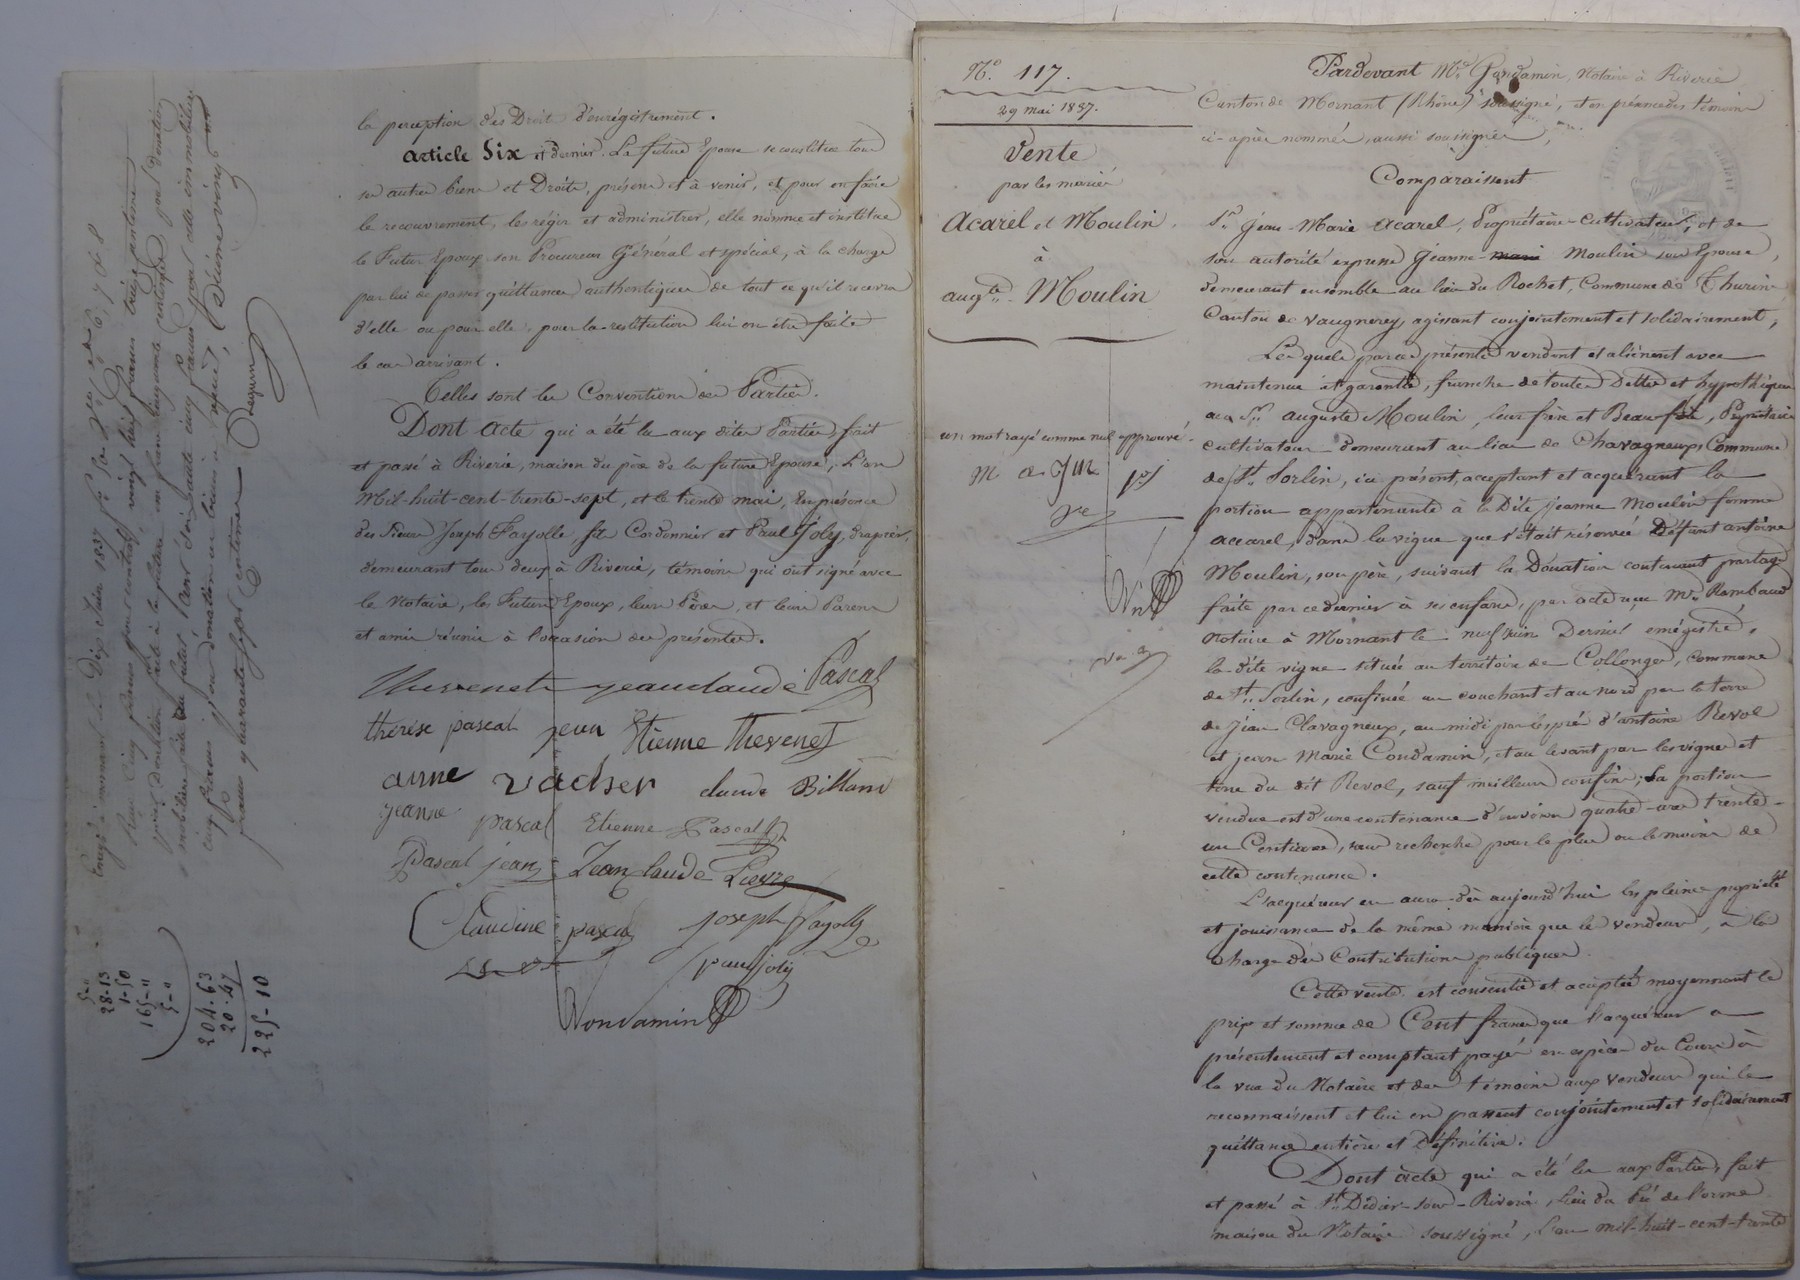 la perception des Droits d'enrégistrement.
Article Six et dernier. La future Epouse se constitue tous
ses autres biens et Droits, présens et à venir, et pour en faire
le recouvrement, les régir et administrer, elle nomme et institue
le Futur Epoux son Procureur Général et spécial, à la charge
par lui de passer quittances authentiques de tout ce qu'il recevra
d'elle ou pour elle, pour la restitution lui en être faite
le cas arrivant.
Telles sont les Conventions des Parties.
Dont acte qui a été lu aux dites Parties, fait
et passé à Riverie, maison du père de la future Epouse, L'an
Mil-huit-cent-trente-sept, et le trente mai, En présence
des Sieurs Joseph Fayolle, fils Cordonnier et Paul Joly, drapier,
demeurant tous deux à Riverie, témoins qui ont signé avec
le Notaire, les Futurs Epoux, leurs Pères, et leurs Parens
et amis réunis à l'occasion des présentes.
Thevenet jeanclaude Pascal
thérèse pascal jean Etienne Thevenet
anne vacher claude Billard
jeanne pascal Etienne Pascal
Pascal jean Jean Claude Pierre
Claudine pascal joseph fayolle
paul joly
Condamin
Enregé à mornant le Dix Juin 1837
28-13
1-50
165-"
5-"
204.63
20.47
225-10
N.o 117.
29 mai 1837.
Vente
par les mariés
Acarel et Moulin
à
aug.te Moulin
un mot rayé comme nul approuvé.
M A JM
Pardevant M.e Condamin, Notaire à Riverie
Canton de Mornant (Rhône) soussigné, et en présence des témoins
ci-après nommés, aussi soussignés,
Comparaissent
S.r Jean-Marie Acarel, Propriétaire-Cultivateur, et de
son autorité expresse Jeanne marie Moulin son Epouse,
demeurant ensemble au lieu du Rochet, Commune de Thurins
Canton de Vaugneray, agissant conjointement et solidairement,
Lesquels par ces présentes vendent et aliènent avec
maintenue et garantie, franche de toutes Dettes et hypothèques
au S.r Auguste Moulin, leur frère et Beau-frère, Propriétaire
cultivateur demeurant au lieu de Chavagneux, Commune
de S.t Sorlin, ici présent, acceptant et acquérant la
portion appartenante à la Dite jeanne Moulin femme
accarel, dans la vigne que s'était réservée Défunt antoine
Moulin, son père, suivant la Donation contenant partage
faite par ce dernier à ses enfans, par acte reçu M.e Rambaud
Notaire à Mornant le neuf Juin Dernier enrégistré,
la dite vigne située au territoire de Collonges, commune
de S.t Sorlin, confinée au couchant et au nord par la terre
de Jean Clavagneux, au midi par les prés d'antoine Revol
et jean Marie Condamin, et au levant par les vignes et
terre du dit Revol, sauf meilleurs confins; La portion
vendue est d'une contenance d'environ quatre-ares trente-
un Centiares, sans recherche pour le plus ou le moins de
cette contenance.
L'acquéreur en aura dès aujourd'hui les pleine propriété
et jouissance de la même manière que les vendeurs, à la
charge des Contributions publiques.
Cette vente est consentie et acceptée moyennant le
prix et somme de Cent francs que l'acquéreur a
présentement et comptant payée en espèces du Cours à
la vue du Notaire et des témoins aux vendeurs qui le
reconnaissent et lui en passent conjointement et solidairement
quittance entière et Définitive.
Dont acte qui a été lu aux Parties, fait
et passé à S.t Didier-sous-Riverie, Lieu du Pré de l'orme
maison du Notaire soussigné, L'an mil-huit-cent-trente